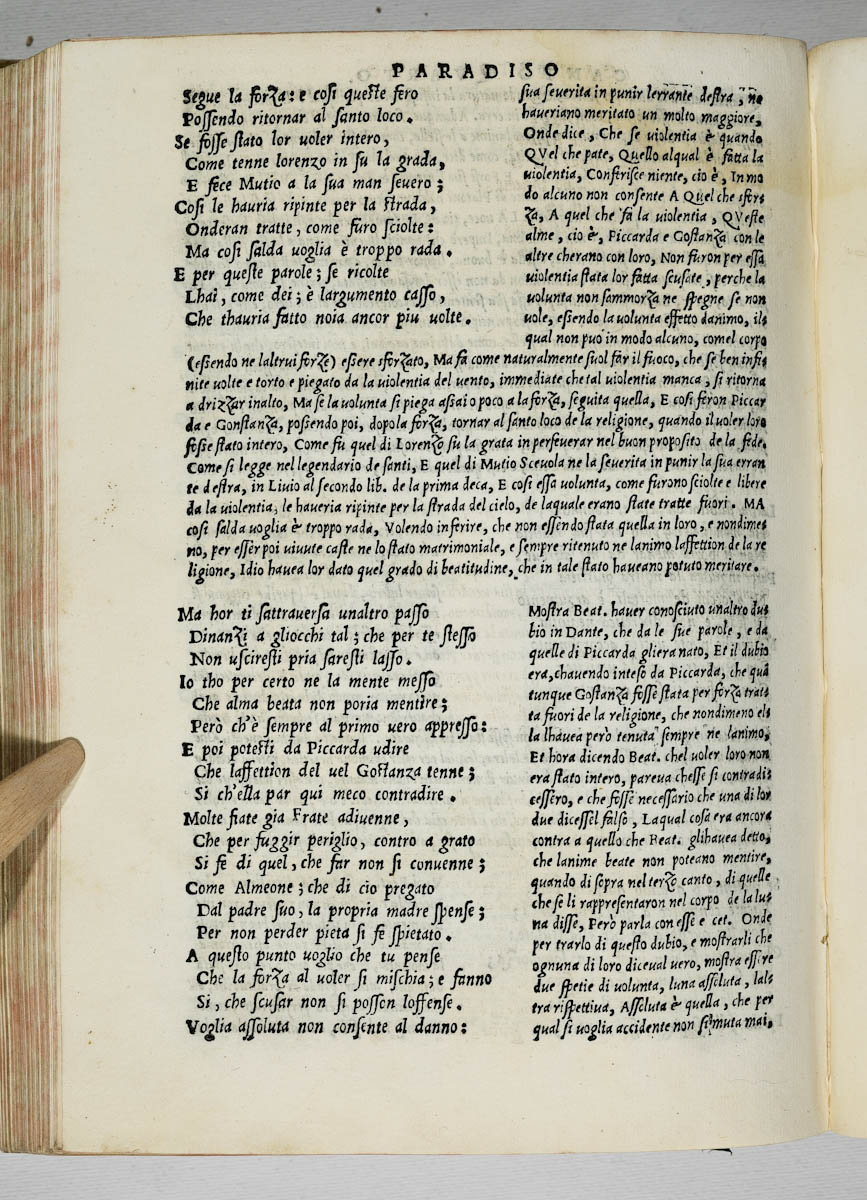 PARADISO
Segue la forza: e cosi queste fero
Possendo ritornar al santo loco.
Se fosse stato lor uoler intero,
Come tenne lorenzo in su la grada,
E fece Mutio a la sua man seuero;
Cosi le hauria ripinte per la strada,
Onderan tratte, come furo sciolte:
Ma cosi salda uoglia è troppo rada.
E per queste parole; se ricolte
Lhai, come dei; è largumento casso,
Che thauria fatto noia ancor piu uolte.
sua seuerita in punir lerrante destra, ne
haueriano meritato un molto maggiore,
Onde dice, Che se uiolentia è quando
QVel che pate, Quello alqual è fatta la
uiolentia, Conferisce niente, cio è, In mo
do alcuno non consente A Quel che sfor=
za, A quel che fa la uiolentia, QVeste
alme, cio è, Piccarda e Gostanza con le
altre cherano con loro, Non furon per essa
uiolentia stata lor fatta scusate, perche la
uolunta non sammorza ne spegne se non
uole, essendo la uolunta effetto danimo, il=
qual non puo in modo alcuno, comel corpo
(essendo ne laltrui forze) essere sforzato, Ma fa come naturalmente suol far il fuoco, che se ben infi=
nite uolte e torto e piegato da la uiolentia del uento, immediate che tal uiolentia manca, si ritorna
a drizzar inalto, Ma se la uolunta si piega assai o poco a la forza, seguita quella, E cosi feron Piccar
da e Gonstanza, possendo poi, dopo la forza, tornar al santo loco de la religione, quando il uoler loro
fosse stato intero, Come fu quel di Lorenzo su la grata in perseuerar nel buon proposito de la fede.
Come si legge nel legendario de santi, E quel di Mutio Sceuola ne la seuerita in punir la sua erran
te destra, in Liuio al secondo lib. de la prima deca, E cosi essa uolunta, come furono sciolte e libere
da la uiolentia, le haueria ripinte per la strada del cielo, de laquale erano state tratte fuori. MA
cosi salda uoglia è troppo rada, Volendo inferire, che non essendo stata quella in loro, e nondime=
no, per esser poi uiuute caste ne lo stato matrimoniale, e sempre ritenuto ne lanimo laffettion de la re
ligione, Idio hauea lor dato quel grado di beatitudine, che in tale stato haueano potuto meritare.
Ma hor ti sattrauersa unaltro passo
Dinanzi a gliocchi tal; che per te stesso
Non usciresti pria saresti lasso.
Io tho per certo ne la mente messo
Che alma beata non poria mentire;
Però ch'è sempre al primo uero appresso:
E poi potesti da Piccarda udire
Che laffettion del uel Gostanza tenne;
Si ch'ella par qui meco contradire.
Molte fiate gia Frate adiuenne,
Che per fuggir periglio, contro a grato
Si fe di quel, che far non si conuenne;
Come Almeone; che di cio pregato
Dal padre suo, la propria madre spense;
Per non perder pieta si fe spietato.
A questo punto uoglio che tu pense
Che la forza al uoler si mischia; e fanno
Si, che scusar non si posson loffense.
Voglia assoluta non consente al danno:
Mostra Beat. hauer conosciuto unaltro du=
bio in Dante, che da le sue parole, e da
quelle di Piccarda gliera nato, Et il dubio
era, chauendo inteso da Piccarda, che quā
tunque Gostanza fosse stata per forza trat=
ta fuori de la religione, che nondimeno el=
la lhauea però tenuta sempre ne lanimo,
Et hora dicendo Beat. chel uoler loro non
era stato intero, pareua chesse si contradi=
cessero, e che fosse necessario che una di lor
due dicessel falso, Laqual cosa era ancora
contra a quello che Beat. glihauea detto,
che lanime beate non poteano mentire,
quando di sopra nel terzo canto, di quelle
che se li rappresentaron nel corpo de la lu=
na disse, Però parla con esse e cet. Onde
per trarlo di questo dubio, e mostrarli che
ognuna di loro diceual uero, mostra essere
due spetie di uolunta, luna assoluta, lal=
tra rispettiua, Assoluta è quella, che per
qual si uoglia accidente non si muta mai,